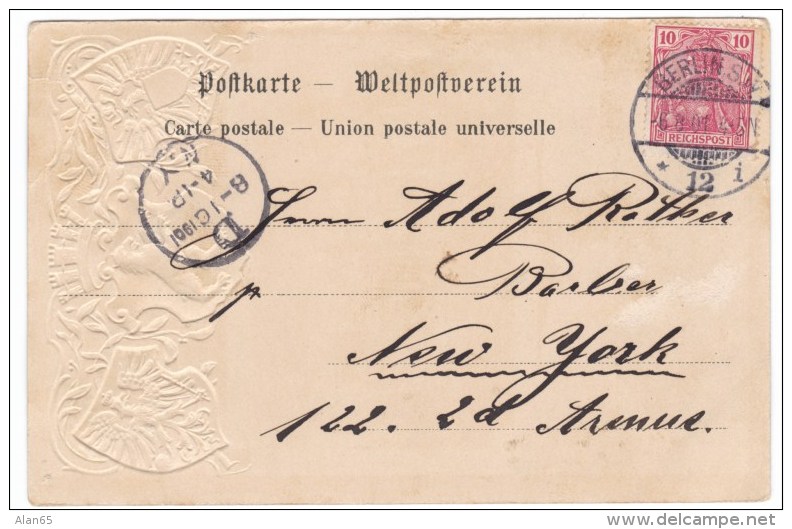 Postkarte — Weltpostverein
Carte postale — Union postale universelle
10 10
REICHSPOST
BERLIN S.W.
* 12 i
N.Y.
8-1
1901
D
Herrn Adolf Rother
p Barber
New York
122. 2d Avenue.
Alan65
delcampe.net